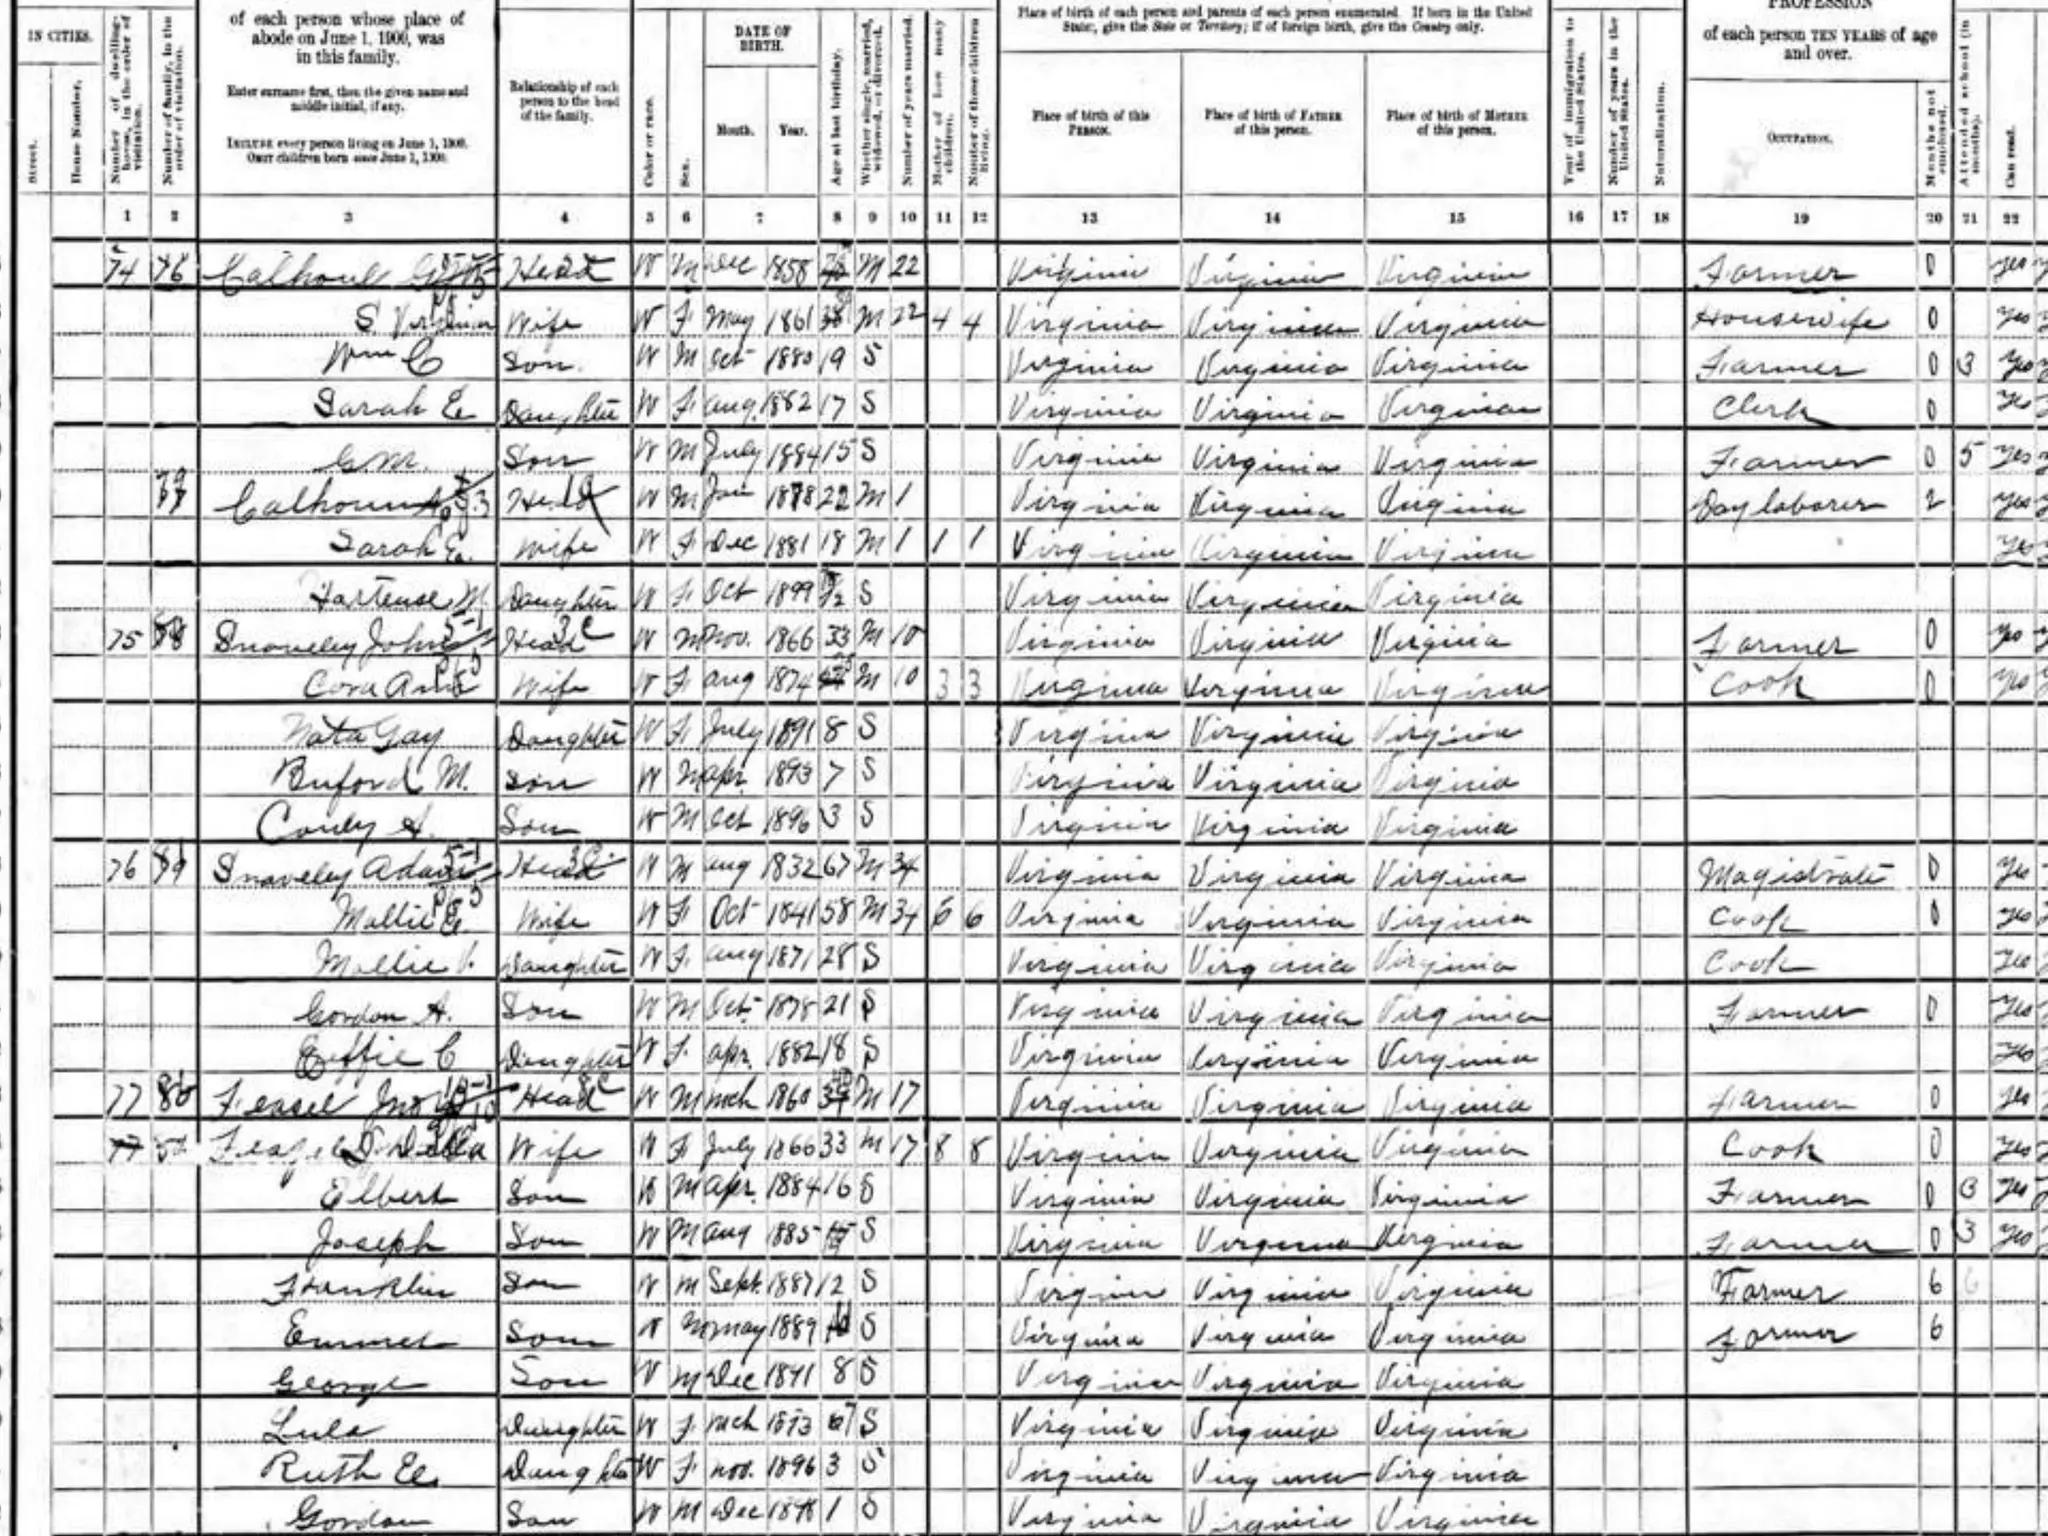 IN CITIES.
Street.
House Number.
Number of dwelling-house, in the order of visitation.
Number of family, in the order of visitation.
of each person whose place of abode on June 1, 1900, was in this family.
Enter surname first, then the given name and middle initial, if any.
INCLUDE every person living on June 1, 1900.
OMIT children born since June 1, 1900.
Relationship of each person to the head of the family.
Color or race.
Sex.
DATE OF BIRTH.
Month.
Year.
Age at last birthday.
Whether single, married, widowed, or divorced.
Number of years married.
Mother of how many children.
Number of these children living.
Place of birth of each person and parents of each person enumerated. If born in the United States, give the State or Territory; if of foreign birth, give the Country only.
Place of birth of this PERSON.
Place of birth of FATHER of this person.
Place of birth of MOTHER of this person.
Year of immigration to the United States.
Number of years in the United States.
Naturalization.
PROFESSION
of each person TEN YEARS of age and over.
OCCUPATION.
Months not employed.
Attended school (in months).
Can read.
1 2 3 4 5 6 7 8 9 10 11 12 13 14 15 16 17 18 19 20 21 22
74 76 Calhoun Head W M Dec 1858 M 22 Virginia Virginia Virginia Farmer 0 yes
S. Virginia Wife W F May 1861 38 M 22 4 4 Virginia Virginia Virginia Housewife 0 yes
Wm C Son W M Oct 1880 19 S Virginia Virginia Virginia Farmer 0 3 yes
Sarah E. Daughter W F Aug. 1882 17 S Virginia Virginia Virginia Clerk 0 yes
G.M. Son W M July 1884 15 S Virginia Virginia Virginia Farmer 0 5 yes
77 Calhoun Head W M Jan 1878 22 M 1 Virginia Virginia Virginia Day laborer 2 yes
Sarah E. Wife W F Dec 1881 18 M 1 1 1 Virginia Virginia Virginia yes
Hartense M. Daughter W F Oct 1899 S Virginia Virginia Virginia
75 Snaveley John Head W M Nov. 1866 33 M 10 Virginia Virginia Virginia Farmer 0 yes
Cora Ann Wife W F Aug 1874 M 10 3 3 Virginia Virginia Virginia Cook 0 yes
Nata Gay Daughter W F July 1891 8 S Virginia Virginia Virginia
Buford M. Son W M Apr. 1893 7 S Virginia Virginia Virginia
Conley A. Son W M Oct 1896 3 S Virginia Virginia Virginia
76 Snaveley Adam Head W M Aug 1832 67 M 34 Virginia Virginia Virginia Magistrate 0 yes
Mollie E. Wife W F Oct 1841 58 M 34 6 6 Virginia Virginia Virginia Cook 0 yes
Mollie V. Daughter W F Aug 1871 28 S Virginia Virginia Virginia Cook yes
Gordon A. Son W M Oct. 1878 21 S Virginia Virginia Virginia Farmer 0 yes
Effie C Daughter W F. Apr. 1882 18 S Virginia Virginia Virginia yes
77 80 Feasel Jno Head W M Mch 1860 M 17 Virginia Virginia Virginia Farmer 0 yes
77 Della Wife W F July 1866 33 M 17 8 8 Virginia Virginia Virginia Cook 0 yes
Elbert Son W M Apr. 1884 16 S Virginia Virginia Virginia Farmer 0 3 yes
Joseph Son W M Aug 1885 S Virginia Virginia Virginia Farmer 0 3 yes
Franklin Son W M Sept. 1887 12 S Virginia Virginia Virginia Farmer 6 6
Emmet Son W M May 1889 S Virginia Virginia Virginia Farmer 6
George Son W M Dec 1891 8 S Virginia Virginia Virginia
Lula Daughter W F Mch 1893 7 S Virginia Virginia Virginia
Ruth E. Daughter W F Nov. 1896 3 S Virginia Virginia Virginia
Gordon Son W M Dec 1898 1 S Virginia Virginia Virginia